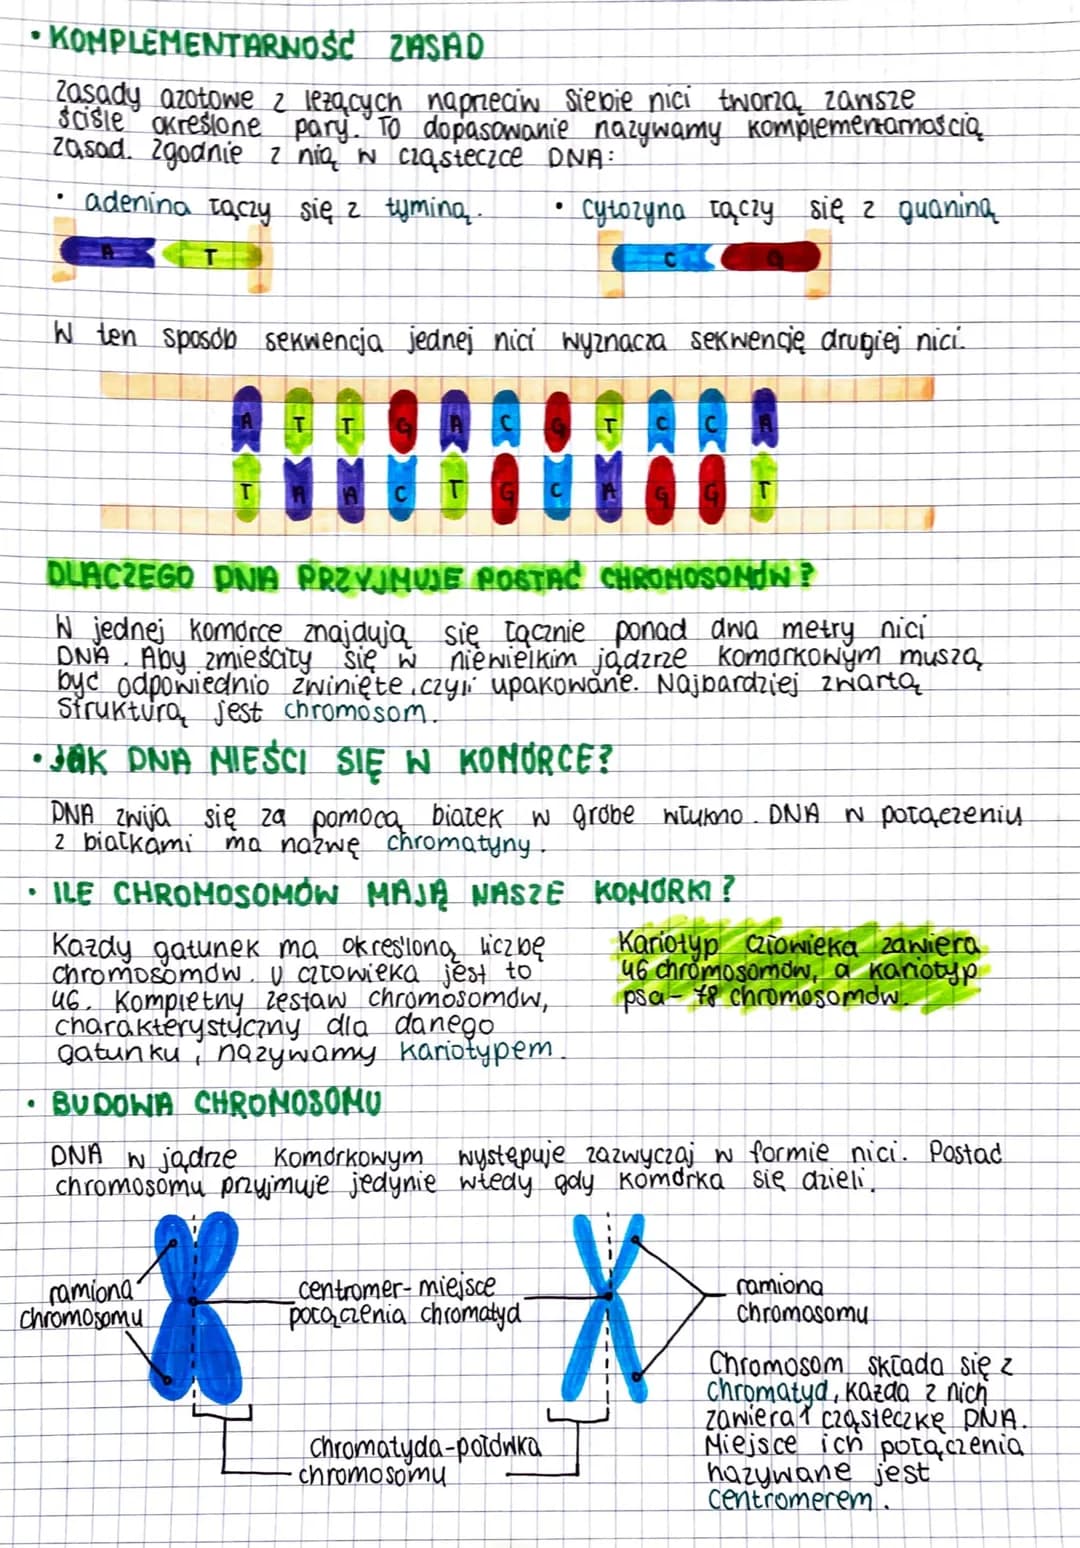 • KOMPLEMENTARNOŚĆ ZASAD
Zasady azotowe z leżących naprzeciw siebie nici tworzą zawsze
ściśle określone pary. To dopasowanie nazywamy komplementarnością
zasad. Zgodnie z nią w cząsteczce DNA:
• adenina łączy się z tyminą.
• cytozyna łączy się z guaniną
A T
C G
W ten sposób sekwencja jednej nici wyznacza sekwencję drugiej nici.
A T T G A C G T C C A
T A A C T G C A G G T
DLACZEGO DNA PRZYJMUJE POSTAĆ CHROMOSOMÓW?
W jednej komórce znajdują się łącznie ponad dwa metry nici
DNA. Aby zmieściły się w niewielkim jądrze komórkowym muszą
być odpowiednio zwinięte, czyli upakowane. Najbardziej zwartą
strukturą jest chromosom.
• JAK DNA MIEŚCI SIĘ W KOMÓRCE?
DNA zwija się za pomocą białek w grube włukno. DNA w połączeniu
z białkami ma nazwę chromatyny.
• ILE CHROMOSOMÓW MAJĄ NASZE KOMÓRKI?
Każdy gatunek ma określoną liczbę
chromosomów. U człowieka jest to
46. Kompletny zestaw chromosomów,
charakterystyczny dla danego
gatunku, nazywamy kariotypem.
Kariotyp człowieka zawiera
46 chromosomów, a kariotyp
psa - 78 chromosomów.
• BUDOWA CHROMOSOMU
DNA w jądrze komórkowym występuje zazwyczaj w formie nici. Postać
chromosomu przyjmuje jedynie wtedy gdy komórka się dzieli.
ramiona
chromosomu
centromer - miejsce
połączenia chromatyd
ramiona
chromosomu
chromatyda - połówka
chromosomu
Chromosom składa się z
chromatyd, każda z nich
zawiera 1 cząsteczkę DNA.
Miejsce ich połączenia
nazywane jest
centromerem.